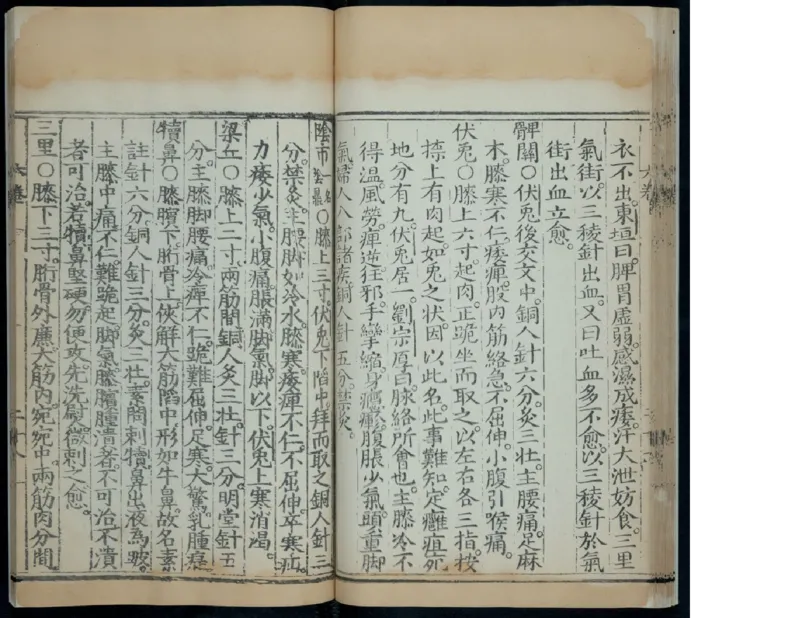 衣不出。東垣曰。脾胃虛弱。感濕成痿。汗大泄。妨食。三里
氣街以三稜針出血。又曰吐血多不愈。以三稜針於氣
街出血立愈。
髀關○伏兎後交文中。銅人針六分。灸三壯。主腰痛。足麻
木。膝寒不仁。痿痺。股內筋絡急。不屈伸。小腹引喉痛。
伏兎○膝上六寸起肉。正跪坐而取之。以左右各三指按
捺。上有肉起如兎之狀。因以此名。此事難知。定癰疽死
地分有九。伏兎居一。劉宗厚曰。脉絡所會也。主膝冷不
得溫。風勞。痺逆。狂邪。手攣縮。身癮。腹脹少氣。頭重。脚
氣。婦人八部諸疾。銅人針五分。禁灸。
陰市一名陰鼎○膝上三寸。伏兎下陷中。拜而取之。銅人針三
分。禁灸。主腰脚如冷水。膝寒。痿痺不仁。不屈伸。卒寒疝。
力痿少氣。小腹痛。脹滿。脚氣。脚以下。伏兎上寒。消渴。
梁丘○膝上二寸。兩筋間。銅人灸三壯。針三分。明堂針五
分。主膝脚腰痛。冷痺不仁。跪難屈伸。足寒。大驚。乳腫痛。
犢鼻○膝臏下。胻骨上。俠解大筋陷中。形如牛鼻。故名。素
註針六分。銅人針三分。灸三壯。素問刺犢鼻出液爲跛。
主膝中痛。不仁。難跪起。脚氣。膝臏腫。潰者。不可治。不潰
者可治。若犢鼻堅硬。勿便攻。先洗熨。微刺之愈。
三里○膝下三寸。胻骨外廉。大筋內。宛宛中。兩筋肉分間